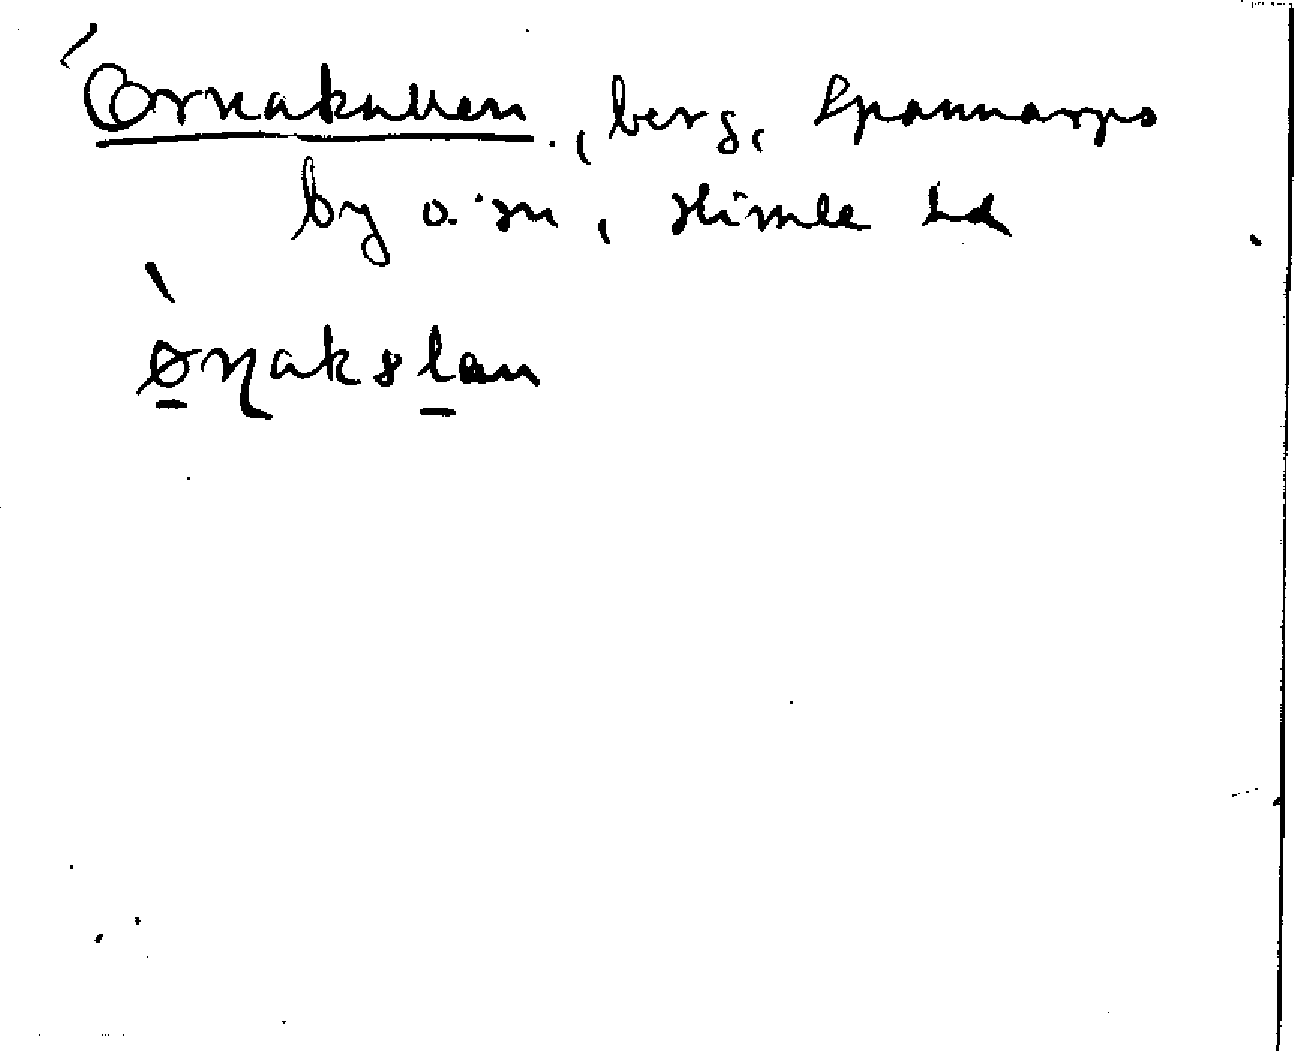 Örnakullen, berg, Spannarps
by o. sn, Himle hd
ønakslan